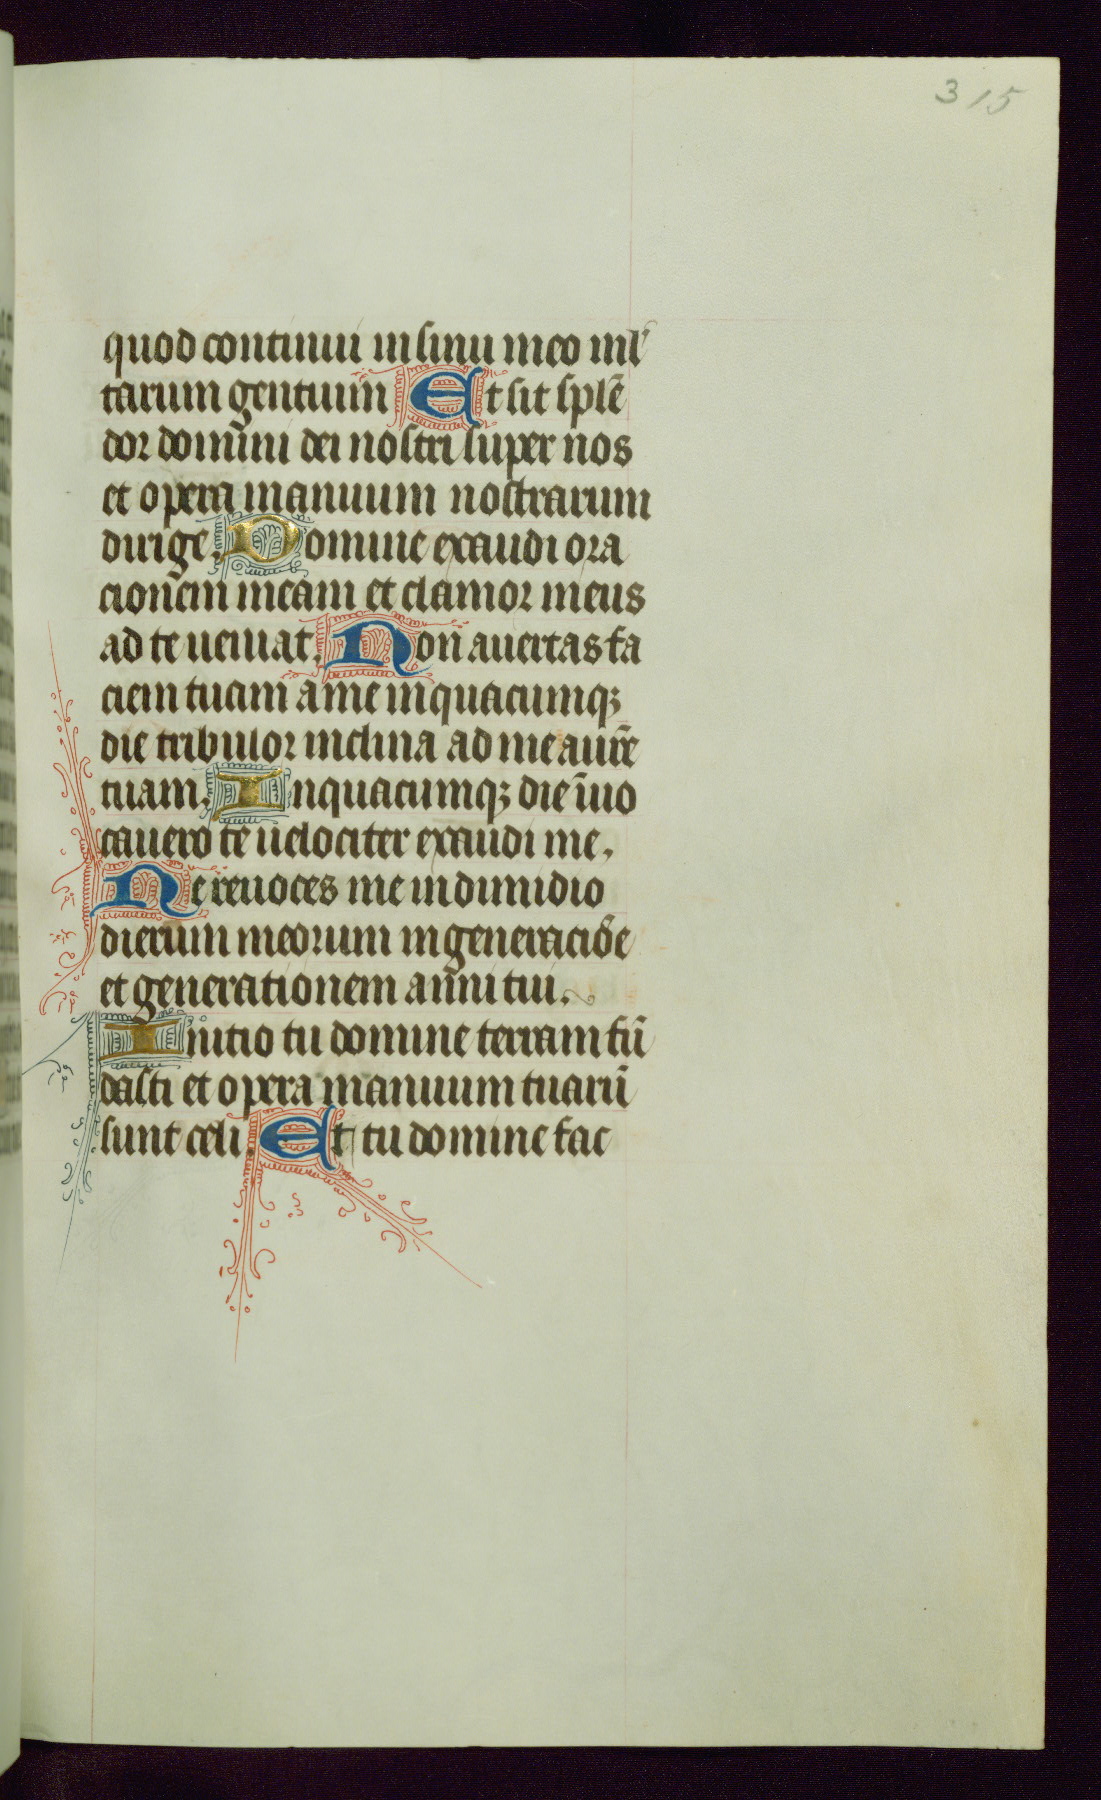 315
quod continui in sinu meo ml'
tarum gentium Et sit splē
dor domini dei nostri super nos
et opera manuum nostrarum
dirige. Domine exaudi ora
cionem meam et clamor meus
ad te ueniat. Non auertas fa
ciem tuam a me in quacumq;
die tribulor inclina ad me aurē
tuam. In quacumq; die īuo
cauero te uelociter exaudi me.
Ne reuoces me in dimidio
dierum meorum in generaciōe
et generationem anni tui.
Initio tu domine terram fū
dasti et opera manuum tuarū
sunt celi. Et tu domine fac